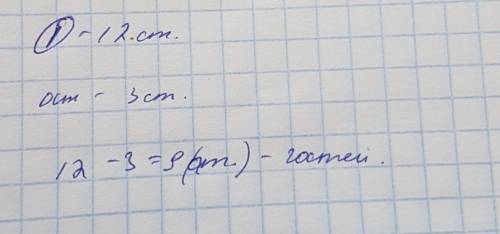 ① - 12.ст.
ост - 3 ст.
12 - 3 = 9 (ст.) - гостей.